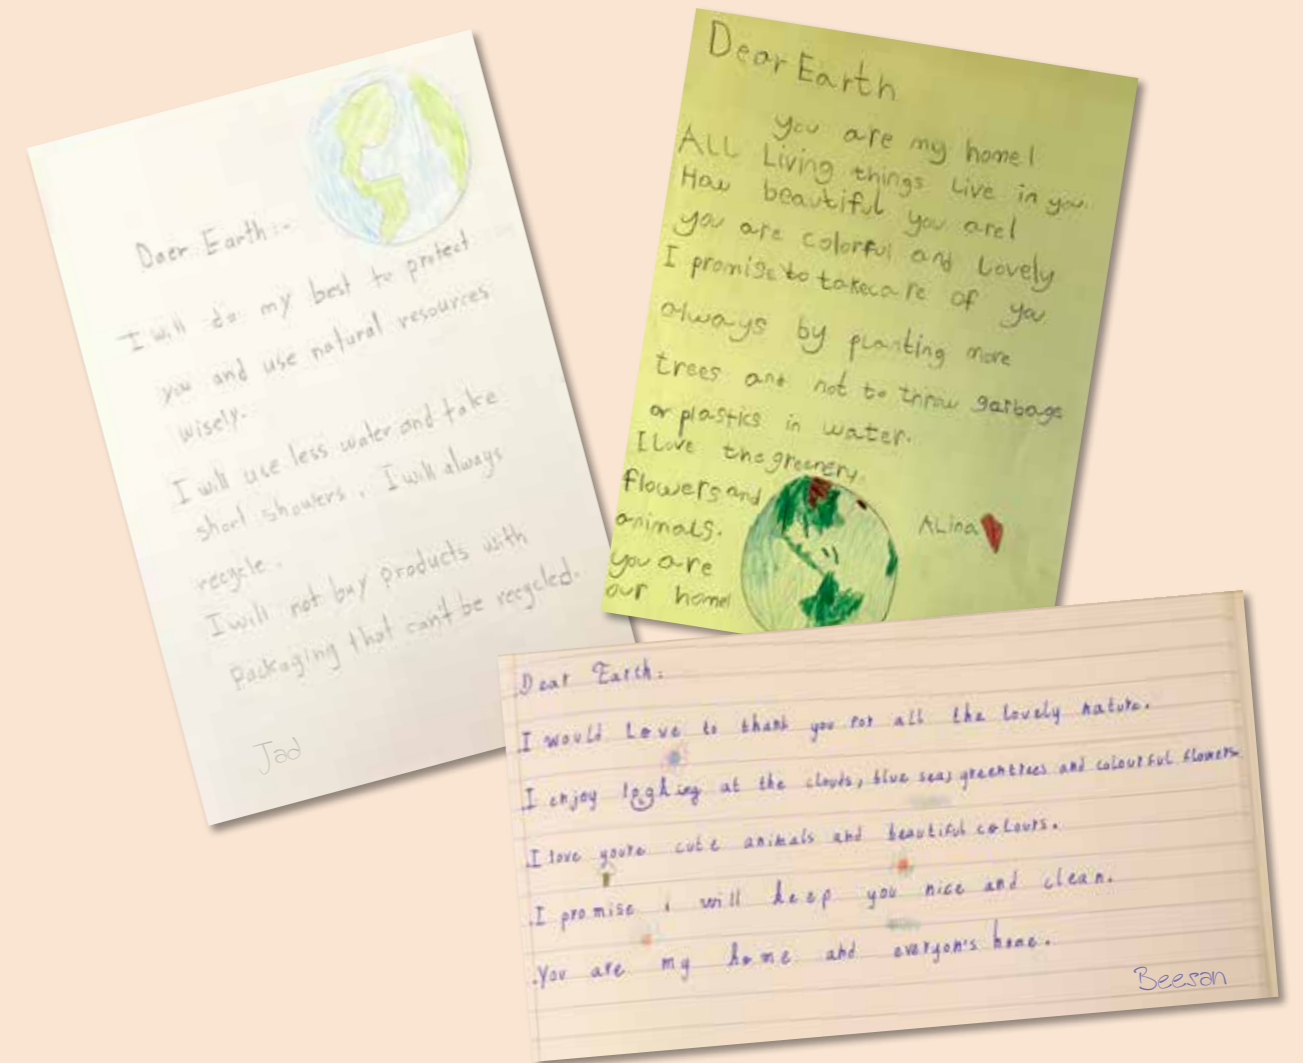 Daer Earth:-
I will do my best to protect
you and use natural resources
wisely.
I will use less water and take
short showers. I will always
recycle.
I will not buy products with
packaging that can't be recycled.
Jad
Dear Earth
you are my home!
ALL Living things Live in you.
How beautiful you are!
you are colorful and Lovely
I promise to takecare of you
always by planting more
trees and not to throw garbage
or plastics in water.
I Love the greenery,
flowers and
animals.
you are
our home!
ALina
Dear Earth:
I would Love to thank you for all the lovely nature.
I enjoy looking at the clouds, blue sea, green trees and colourful flowers.
I love youre cute animals and beautiful colours.
I promise i will keep you nice and clean.
You are my home and everyon's home.
Beesan